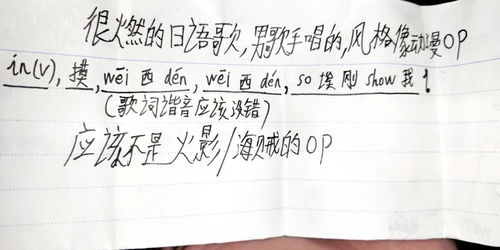 很燃的日语歌,男歌手唱的,风格像动漫OP
in(v),摸,wēi西dén,wēi西dén,so 埃刚 show 我!
(歌词谐音应该没错)
应该不是火影/海贼的OP